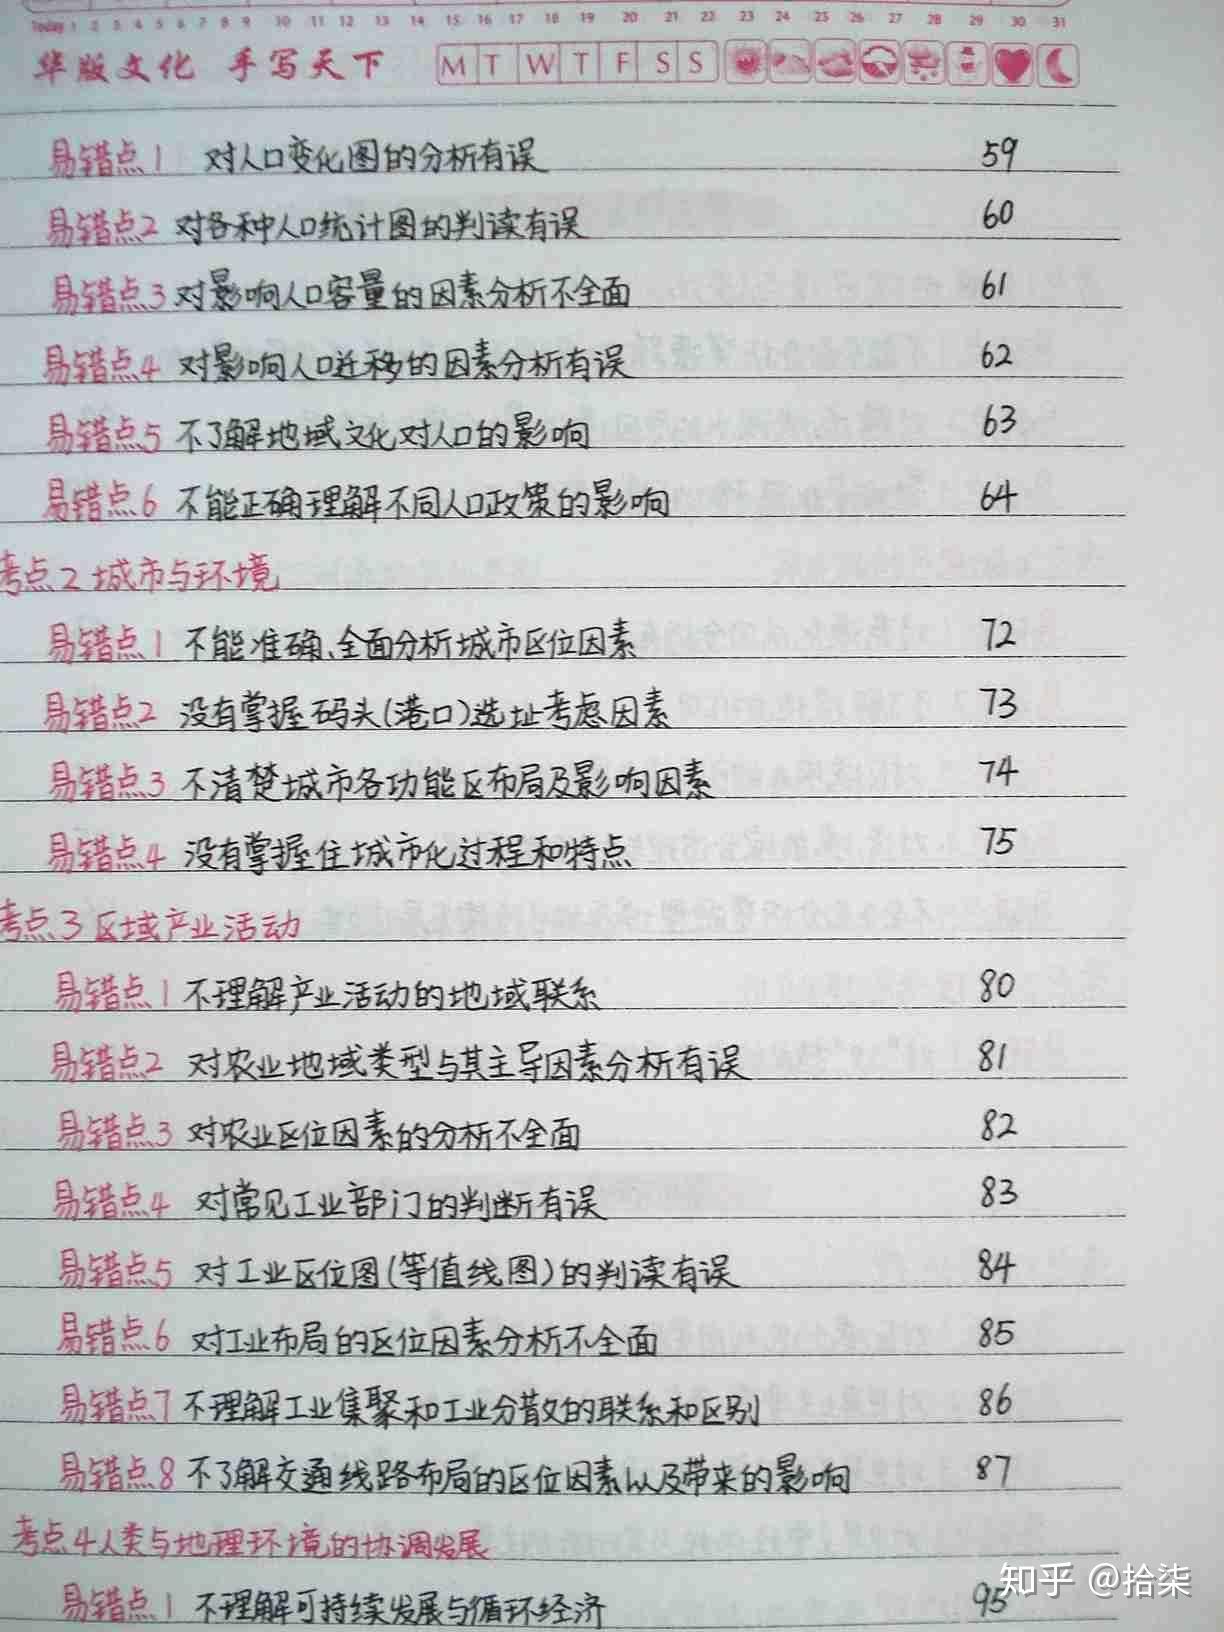 Today 1 2 3 4 5 6 7 8 9 10 11 12 13 14 15 16 17 18 19 20 21 22 23 24 25 26 27 28 29 30 31
华版文化 手写天下 M T W T F S S
易错点1 对人口变化图的分析有误 59
易错点2 对各种人口统计图的判读有误 60
易错点3 对影响人口容量的因素分析不全面 61
易错点4 对影响人口迁移的因素分析有误 62
易错点5 不了解地域文化对人口的影响 63
易错点6 不能正确理解不同人口政策的影响 64
考点2 城市与环境
易错点1 不能准确、全面分析城市区位因素 72
易错点2 没有掌握码头(港口)选址考虑因素 73
易错点3 不清楚城市各功能区布局及影响因素 74
易错点4 没有掌握住城市化过程和特点 75
考点3 区域产业活动
易错点1 不理解产业活动的地域联系 80
易错点2 对农业地域类型与其主导因素分析有误 81
易错点3 对农业区位因素的分析不全面 82
易错点4 对常见工业部门的判断有误 83
易错点5 对工业区位图(等值线图)的判读有误 84
易错点6 对工业布局的区位因素分析不全面 85
易错点7 不理解工业集聚和工业分散的联系和区别 86
易错点8 不了解交通线路布局的区位因素以及带来的影响 87
考点4 人类与地理环境的协调发展
易错点1 不理解可持续发展与循环经济 95
知乎 @拾柒